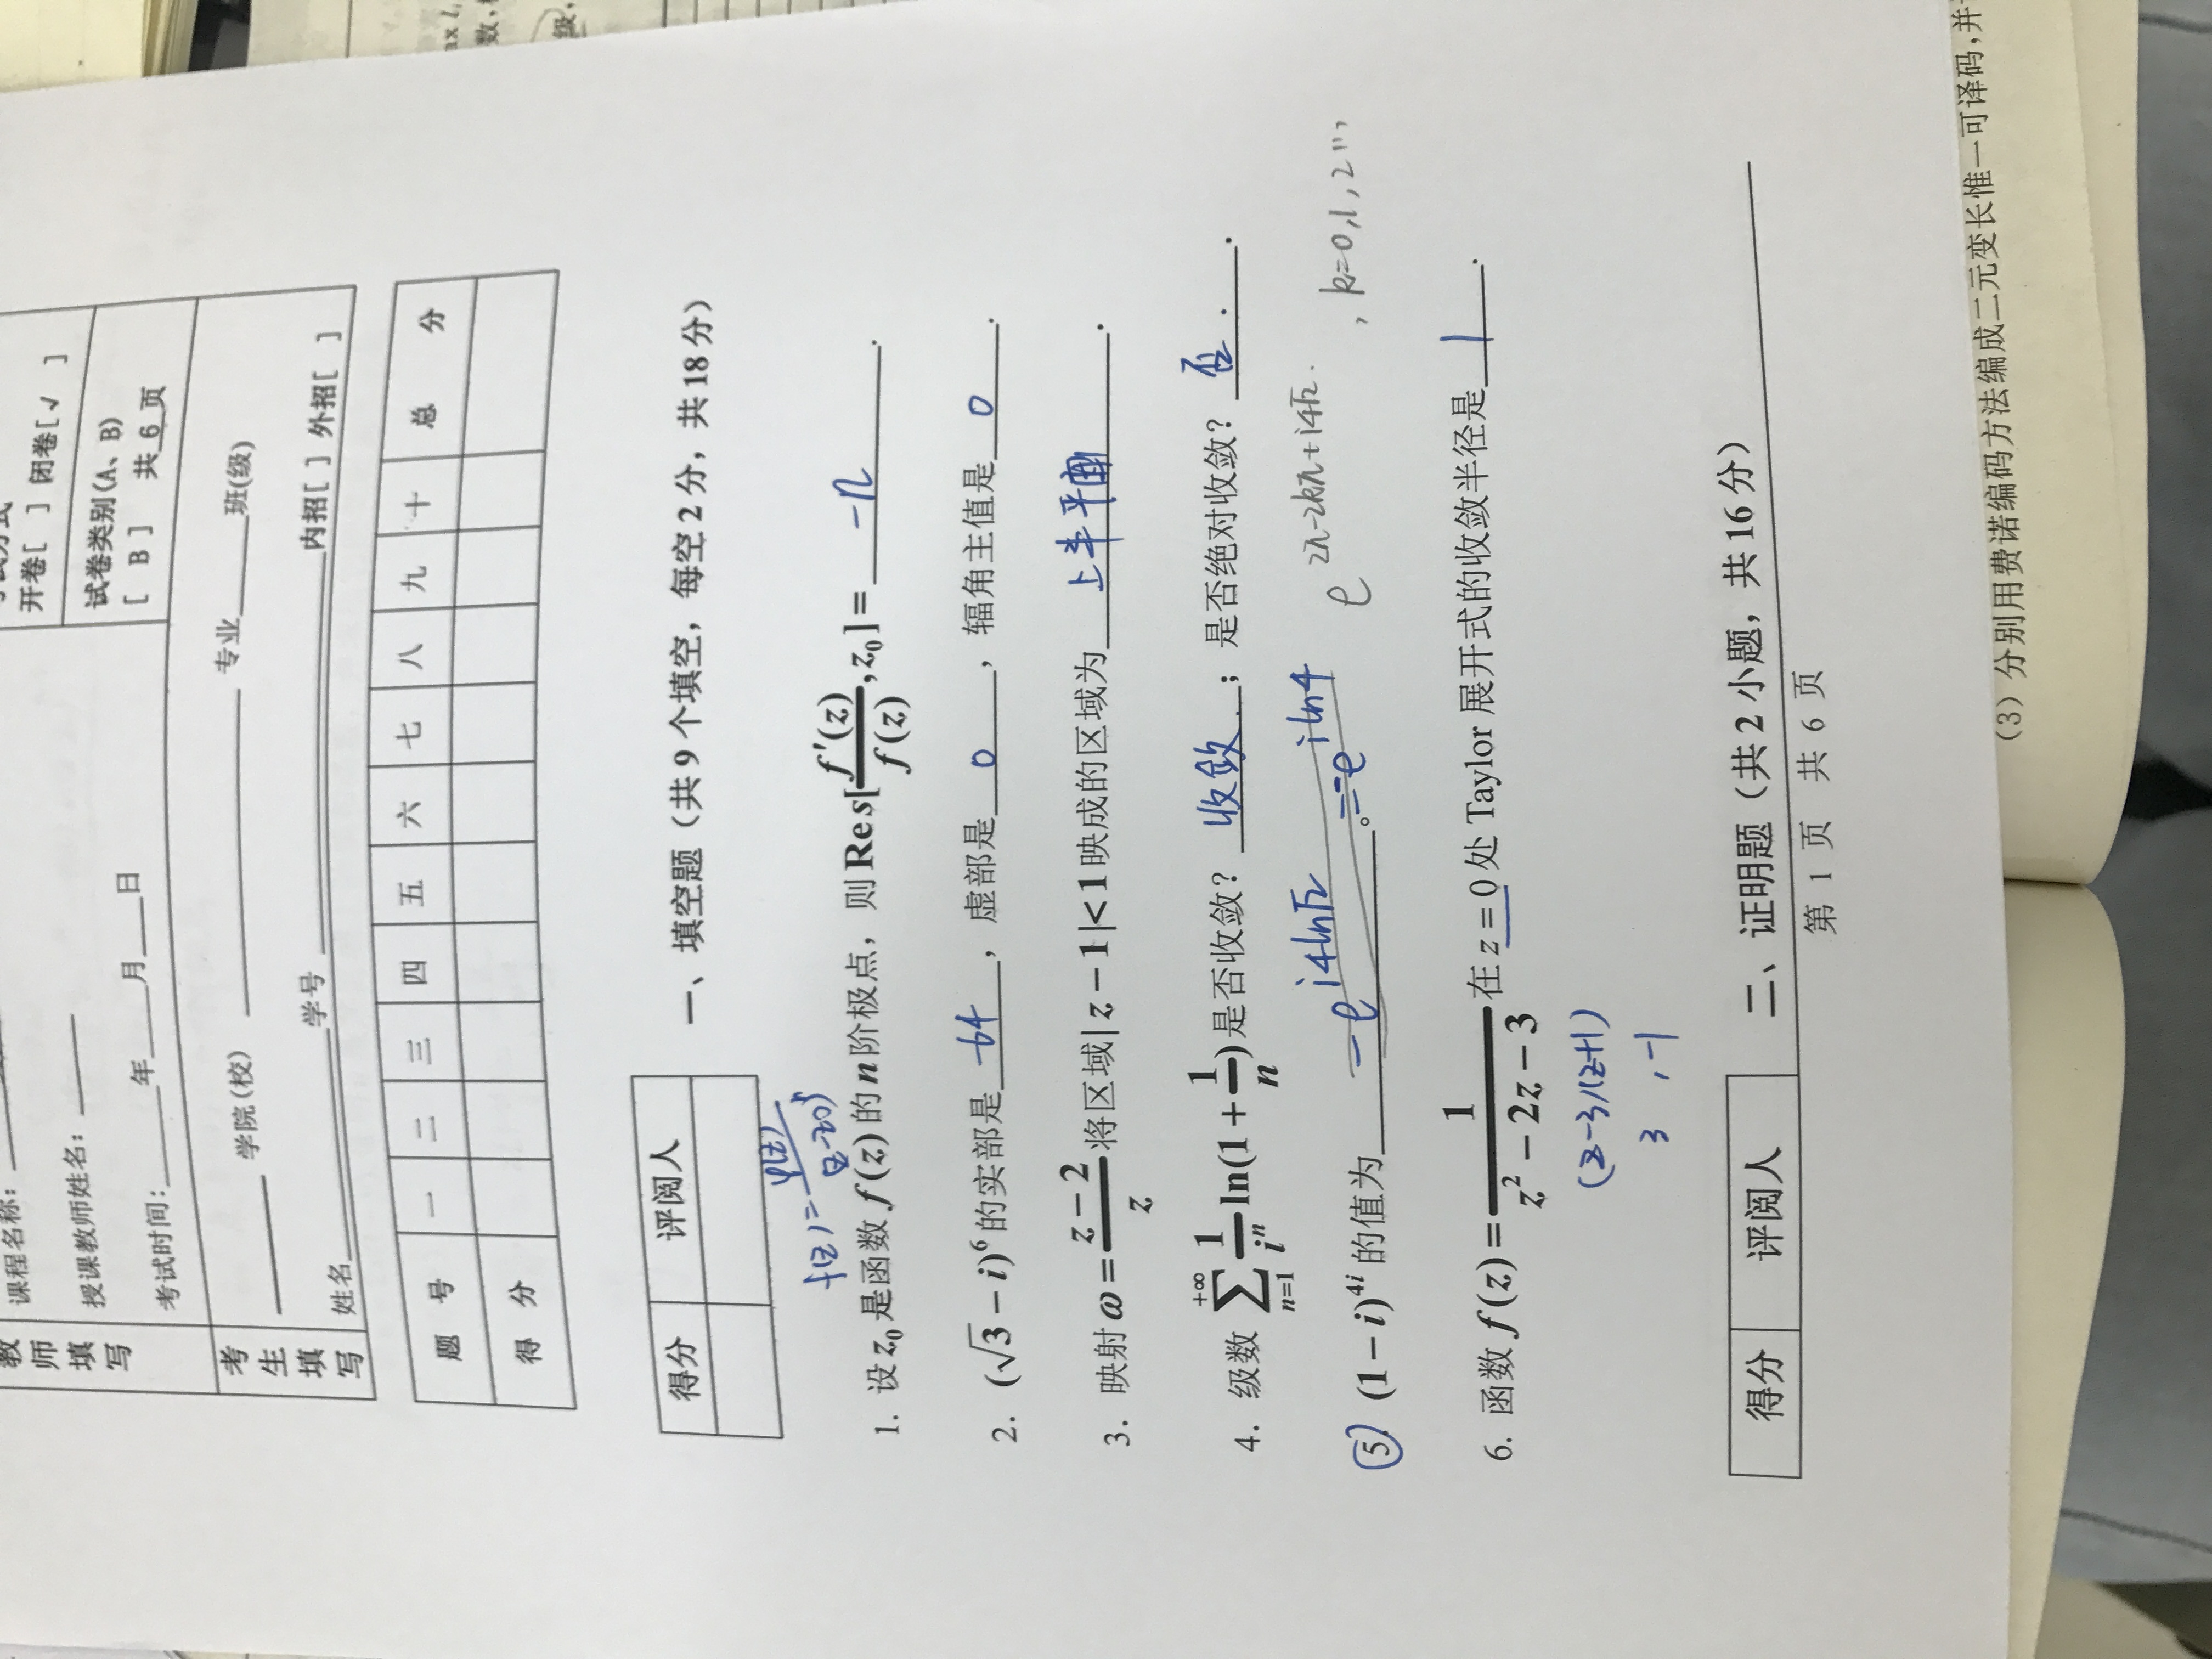 教师填写
课程名称：
授课教师姓名：
考试时间：年 月 日
考试方式
开卷[ ] 闭卷[√ ]
试卷类别(A、B)
[ B ] 共 6 页
考生填写
学院(校) 专业 班(级)
姓名 学号 内招[ ] 外招[ ]
题 号 一 二 三 四 五 六 七 八 九 十 总 分
得 分
得分 评阅人
一、填空题（共 9 个填空，每空 2 分，共 18 分）
f(z)=φ(z)/(z-z0)ⁿ
1. 设 z₀ 是函数 f(z) 的 n 阶极点，则 Re s[f′(z)/f(z), z₀] = -n .
2. (√3 − i)⁶ 的实部是 -64 ，虚部是 0 ，辐角主值是 0 .
3. 映射 ω = (z − 2)/z 将区域 | z − 1 |< 1 映成的区域为 上半平面 .
4. 级数 ∑_{n=1}^{+∞} 1/iⁿ ln(1 + 1/n) 是否收敛？ 收敛 ；是否绝对收敛？ 否 .
5. (1 − i)^{4i} 的值为 -e^{i4ln√2} 。=-e^{iln4} e^{2π-2kπ+i4√2}. , k=0,1,2…,
6. 函数 f(z) = 1/(z² − 2z − 3) 在 z = 0 处 Taylor 展开式的收敛半径是 1 .
(z-3)(z+1)
3 , -1
得分 评阅人
二、证明题（共 2 小题，共 16 分）
第 1 页 共 6 页
（3）分别用费诺编码方法编成二元变长惟一可译码，并